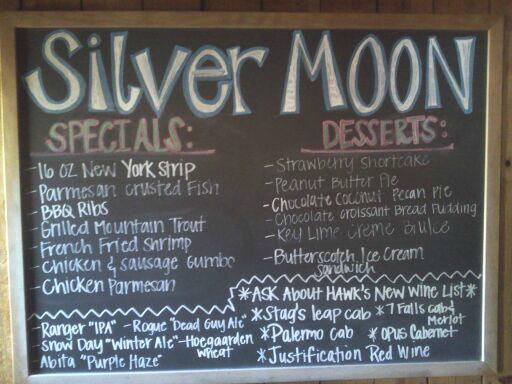 Silver MOON
SPECIALS:
- 16 OZ New York Strip
- Parmesan crusted Fish
- BBQ Ribs
- Grilled Mountain Trout
- French Fried Shrimp
- Chicken & Sausage Gumbo
- Chicken Parmesan
DESSERTS:
- Strawberry Shortcake
- Peanut Butter Pie
- Chocolate Coconut Pecan Pie
- Chocolate Croissant Bread Pudding
- Key Lime Creme Brulee
- Butterscotch Ice Cream
Sandwich
- Ranger "IPA" - Rogue "Dead Guy Ale"
Snow Day "Winter Ale" - Hoegaarden
Wheat
Abita "Purple Haze"
*ASK About HAWK's New Wine List*
*Stag's leap cab *7 Falls cab &
Merlot
*Palermo cab *OPUS Cabernet
*Justification Red Wine